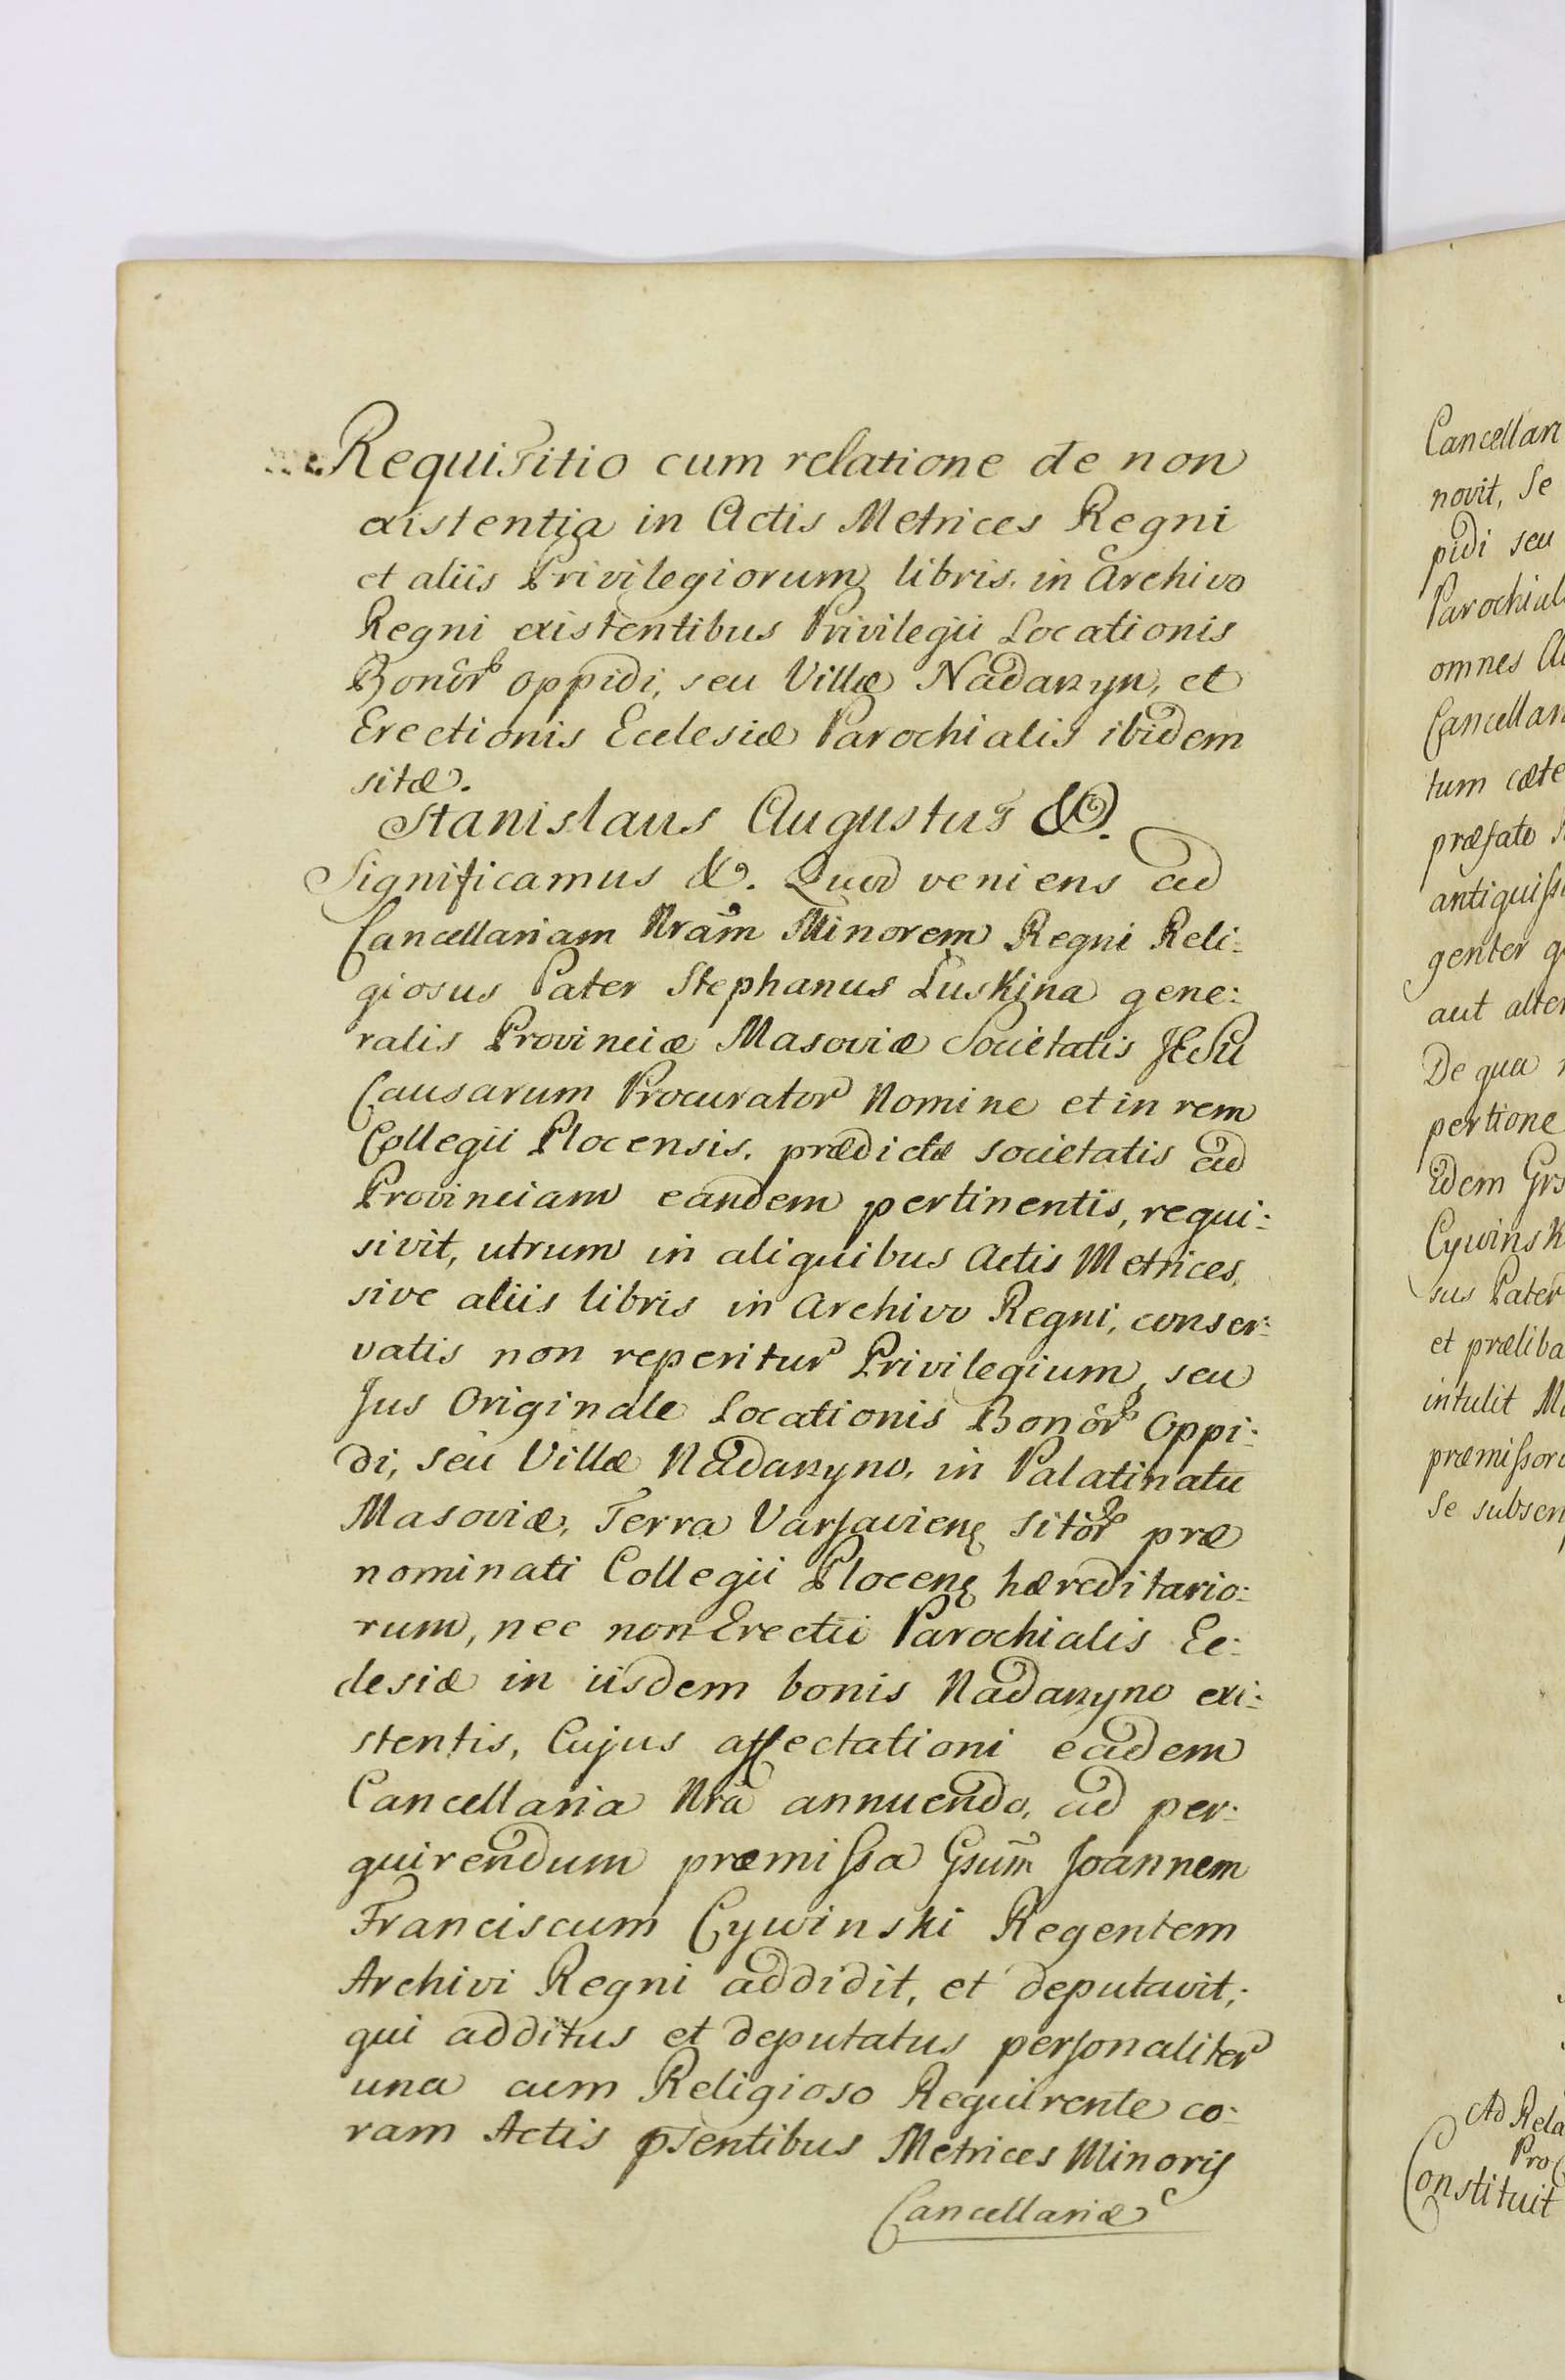 Requisitio cum relatione de non
existentia in Actis Metrices Regni
et aliis Privilegiorum libris, in Archivo
Regni existentibus Privilegii Locationis
Bonor̃ oppidi, seu Villæ Nadarzyn, et
Erectionis Ecclesiæ Parochialis ibidem
sitæ.
Stanislaus Augustus &.
Significamus &. Quod veniens ad
Cancellariam Nram̃ Minorem Regni Reli:
giosus Pater Stephanus Łuskina gene:
ralis Provinciæ Masoviæ Societatis JESu
Causarum Procurator Nomine et in rem
Collegii Plocensis, prædictæ societatis ad
Provinciam eandem pertinentis, requi:
sivit, utrum in aliquibus Actis Metrices,
sive aliis libris in Archivo Regni, conser:
vatis non reperitur Privilegium, seu
Jus Originale Locationis Bonor̃ Oppi:
di, seu Villæ Nadarzyno, in Palatinatu
Masoviæ, Terra Varsavienę sitor̃ præ
nominati Collegii Plocenę hæreditario:
rum, nec non Erectii Parochialis Ec:
clesiæ in iisdem bonis Nadarzyno exi:
stentis, Cujus affectationi eadem
Cancellaria Nra annuendo, ad per:
quirendum præmissa Gsum̃ Joannem
Franciscum Cywinski Regentem
Archivi Regni addidit, et deputavit;
qui additus et deputatus personaliter
una cum Religioso Requirente co:
ram Actis pñsentibus Metrices Minoris
Cancellariæ
Cancellari
novit, Se
pidi seu
Parochial
omnes A
Cancellari
tum cæte
præfato
antiquiss
genter q
aut alter
De qua
pertione
Idem Grs
Cywinsk
sus Pater
et præliba
intulit M
præmissor
se subscri
Ad Rela
Pro C
Constituit